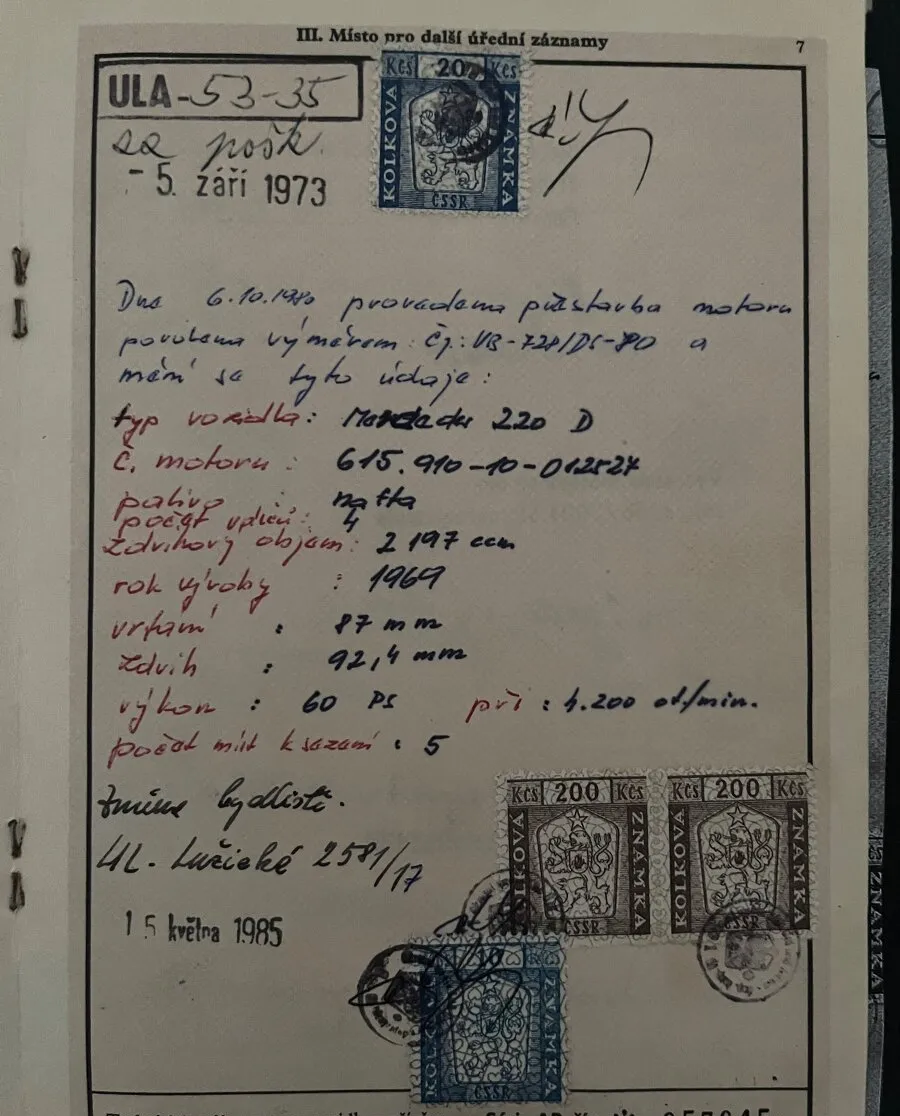 III. Místo pro další úřední záznamy
7
ULA-53-35
za pošk.
- 5. září 1973
Kčs 20 Kčs
KOLKOVA ZNÁMKA
ČSSR
Dne 6.10.1980 provedena přestavba motoru
povolena výměrem: čj.: VB-728/DI-80 a
mění se tyto údaje:
typ vozidla: Mercedes 220 D
č. motoru: 615.910-10-012527
palivo : nafta
počet válců: 4
Zdvihový objem: 2 197 ccm
rok výroby : 1969
vrtání : 87 mm
zdvih : 92,4 mm
výkon : 60 PS při : 4.200 ot/min.
počet míst k sezení : 5
změna bydliště.
UL. Lužická 2581/17
15 května 1985
Kčs 200 Kčs
KOLKOVA ZNÁMKA
ČSSR
Kčs 200 Kčs
KOLKOVA ZNÁMKA
ČSSR
10
KOLKOVA ZNÁMKA
ČSSR
ZNÁMKA